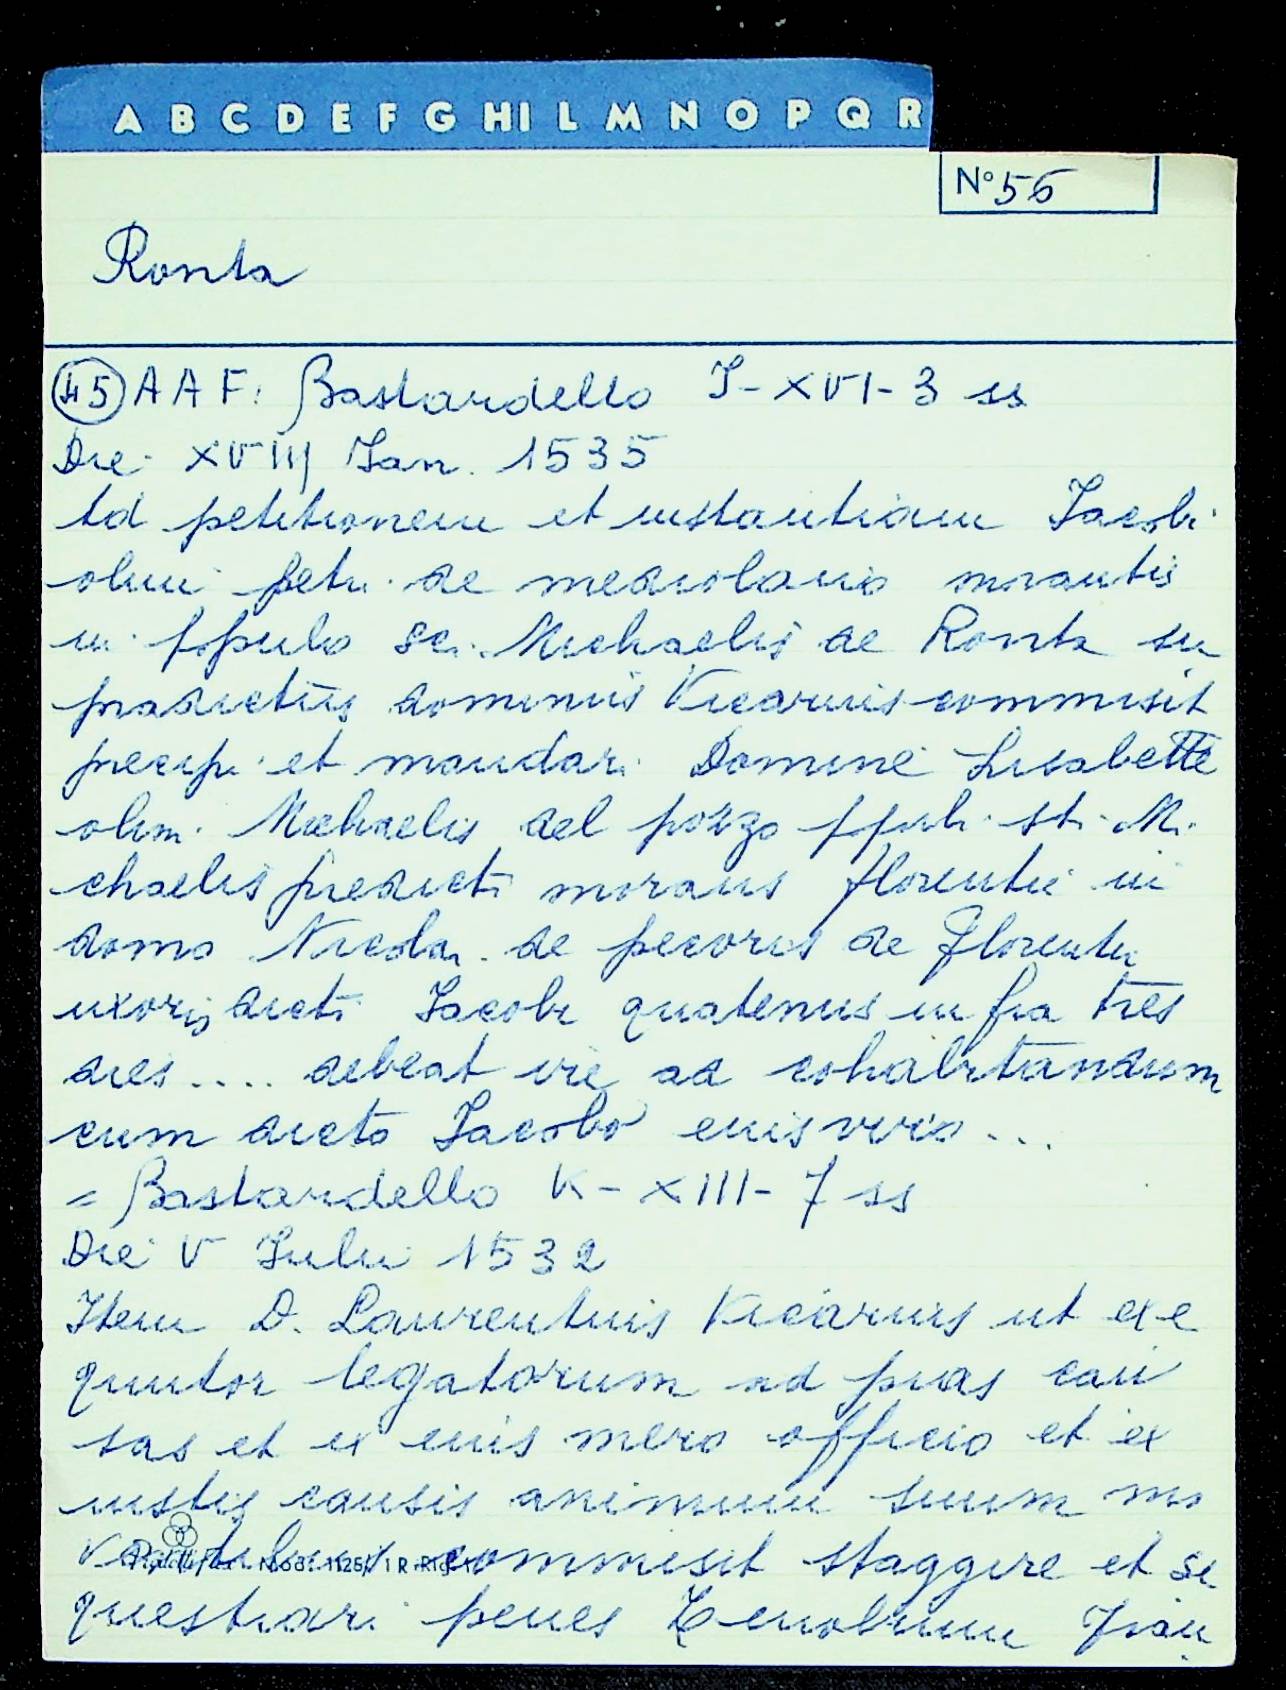 A B C D E F G HI L M N O P Q R
N° 56
Ronta
45 A A F: Bastardello I-XVI-3 ss
Die XVIII Ian. 1535
Ad petitionem et instantiam Iacobi
olim petri de mediolano morantis
in populo sci. Michaelis de Ronta su
pradictus dominus Vicarius commisit
precipi et mandari Domine Lisabette
olim Michaelis del pozzo ppuli sti Mi
chaelis predicti morans florentie in
domo Nicolai de pecoris de florentia
uxoris dicti Iacobi quatenus infra tres
dies .... debeat ire ad cohabitandum
cum dicto Iacobo eius viro ...
= Bastardello K-XIII-7 ss
Die V Iulii 1532
Item D. Laurentius Vicarius ut exe
quutor legatorum ad pias cau
sas et ex eius mero officio et ex
iustis causis animum suum mo
ventibus commisit staggire et se
questrari penes Zenobium